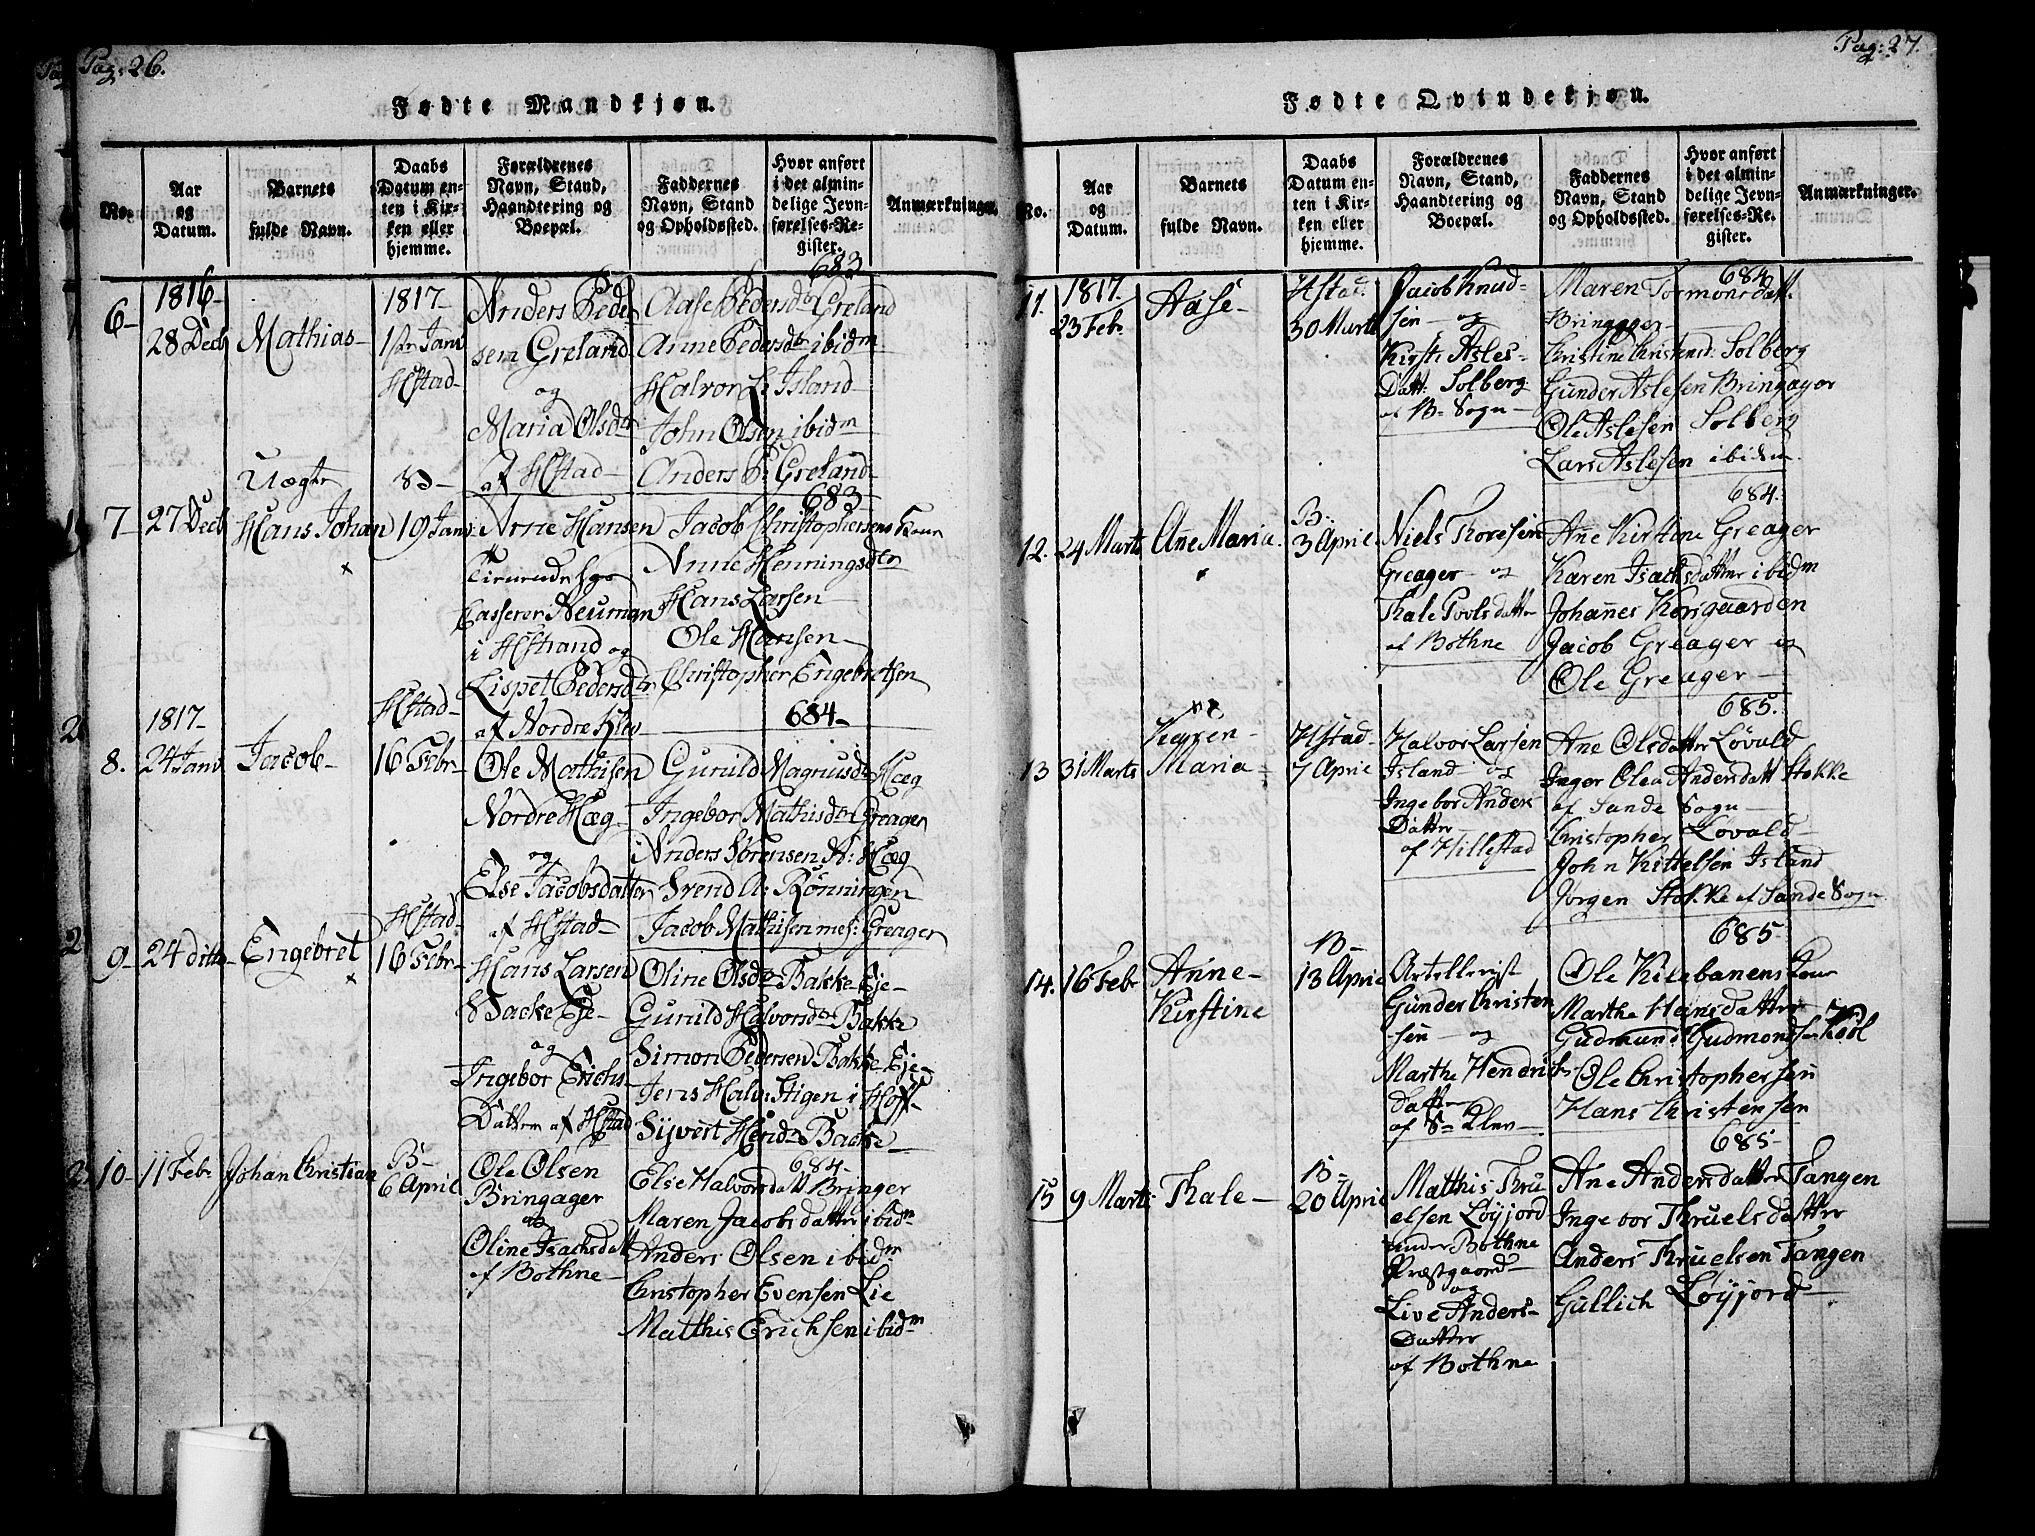 Pag: 26.
Fødte Mandkjøn.
No.
Aar
og
Datum.
Barnets
fulde Navn.
Daabs
Datum en-
ten i Kir-
ken eller
hjemme.
Forældrenes
Navn, Stand,
Haandtering og
Boepæl.
Faddernes
Navn, Stand
og Opholdssted.
Hvor anført
i det almin-
delige Jevn-
førelses-Re-
gister.
Anmærkninger.
6-
1816-
28 Decb
Mathias-
1817-
1ste Janv
Hstad-
Anders Peder
sen Greland
og
Maria Olsdtr
af Hstad-
683
Aase Pedersdtr Greland
Anne Pedersdtr ibidm
Halvor L: Island
John Olsen ibidm
Anders P: Greland-
7-
27 Decb
Uægte
Hans Johan
x
19 Janv:
Arne Hansen
Casserer Neuman
i Hstrand og
Lispet Pedersdtr
af Nordre Klev
683
Jacob Christophersens Kone
Anne Henningsdtr
Hans Larsen
Ole Hansen
Christopher Engebretsen
8.
1817-
24 Janv
Jacob-
Hstad-
16 Febr-
Ole Mathisen
Nordre Hæg-
og
Else Jacobsdatter
af Hstad-
684-
Gunild Magnusdtr Hæg
Ingebor Mathisdtr Greager
Anders Sörensen N: Hæg
Svend A: Rönningen
Jacob Mathisen mes: Greager
9-
24 ditto
Engebret
x
Hstad-
16 Febr-
Hans Larsen
Backe Eje-
og
Ingebor Erichs-
Datter af Hstad
Oline Olsdtr Bakke Eje-
Gunild Halvorsdtr Bakke
Simon Pedersen Bakke Eje-
Jens Halv: Stigen i Hoff-
Sijvert Hend: Backe
10-
11 Febr
Johan Christian
B-
6 April
Ole Olsen
Bringager
og
Oline Isachsdatt
af Bothne-
684-
Else Halvorsdatt Bringer
Maren Jacobsdatter ibidm
Anders Olsen ibidm
Christopher Evensen Lie
Matthis Erichsen ibidm
Pag: 27.
Fødte Qvindekjøn.
No.
Aar
og
Datum.
Barnets
fulde Navn.
Daabs
Datum en-
ten i Kir-
ken eller
hjemme.
Forældrenes
Navn, Stand,
Haandtering og
Boepæl.
Faddernes
Navn, Stand
og Opholdssted.
Hvor anført
i det almin-
delige Jevn-
førelses-Re-
gister.
Anmærkninger.
11.
1817.
23 Febr
Aase-
Hstad.
30 Marts
Jacob Knud-
sen- og
Kirsti Asles-
Datt: Solberg
af B: Sogn-
684
Maren Tormonsdatt.
Bringager-
Christine Christens: Solberg
Gunder Aslesen Bringager
Ole Aslesen Solberg
Lars Aslesen ibidm.
12.
24 Marts
Ane Maria.
B:
3 April
Niels Thoresen
Greager- og
Thale Povlsdatter
af Bothne
684.
Ane Kirstine Greager
Karen Isachsdatter ibidm
Johannes Korsgaarden
Jacob Greager og
Ole Greager-
13
31 Marts
Karen-
Maria-
Hstad-
7 April
Halvor Larsen
Island- og
Ingebor Anders
Datter
af Hillestad
685.
Ane Olsdatter Løvald
Inger Olea Andersdatt Stokke
af Sande Sogn-
Christopher Løvald-
John Kittelsen Island
Jørgen Stokke af Sande Sogn
14.
16 Febr
Anne-
Kirstine
B-
13 April
Artillerist
Gunder Christen
sen- og
Marthe Hendrichs
datter
af S: Klev-
685-
Ole Kilebanens Kone
Marthe Heinsdatter
Gudmund Gudmondsen
Ole Christophersen
Hans Christensen
15
9 Marts
Thale-
B-
20 April
Matthis Thru
elsen Løyjord
under Bothne
Præstgaard-
og
Live Anders-
Datter
af Bothne
685-
Ane Andersdatter Tangen
Ingebor Thruelsdatter
Anders Thruelsen Tangen
Gullich Løyjord-